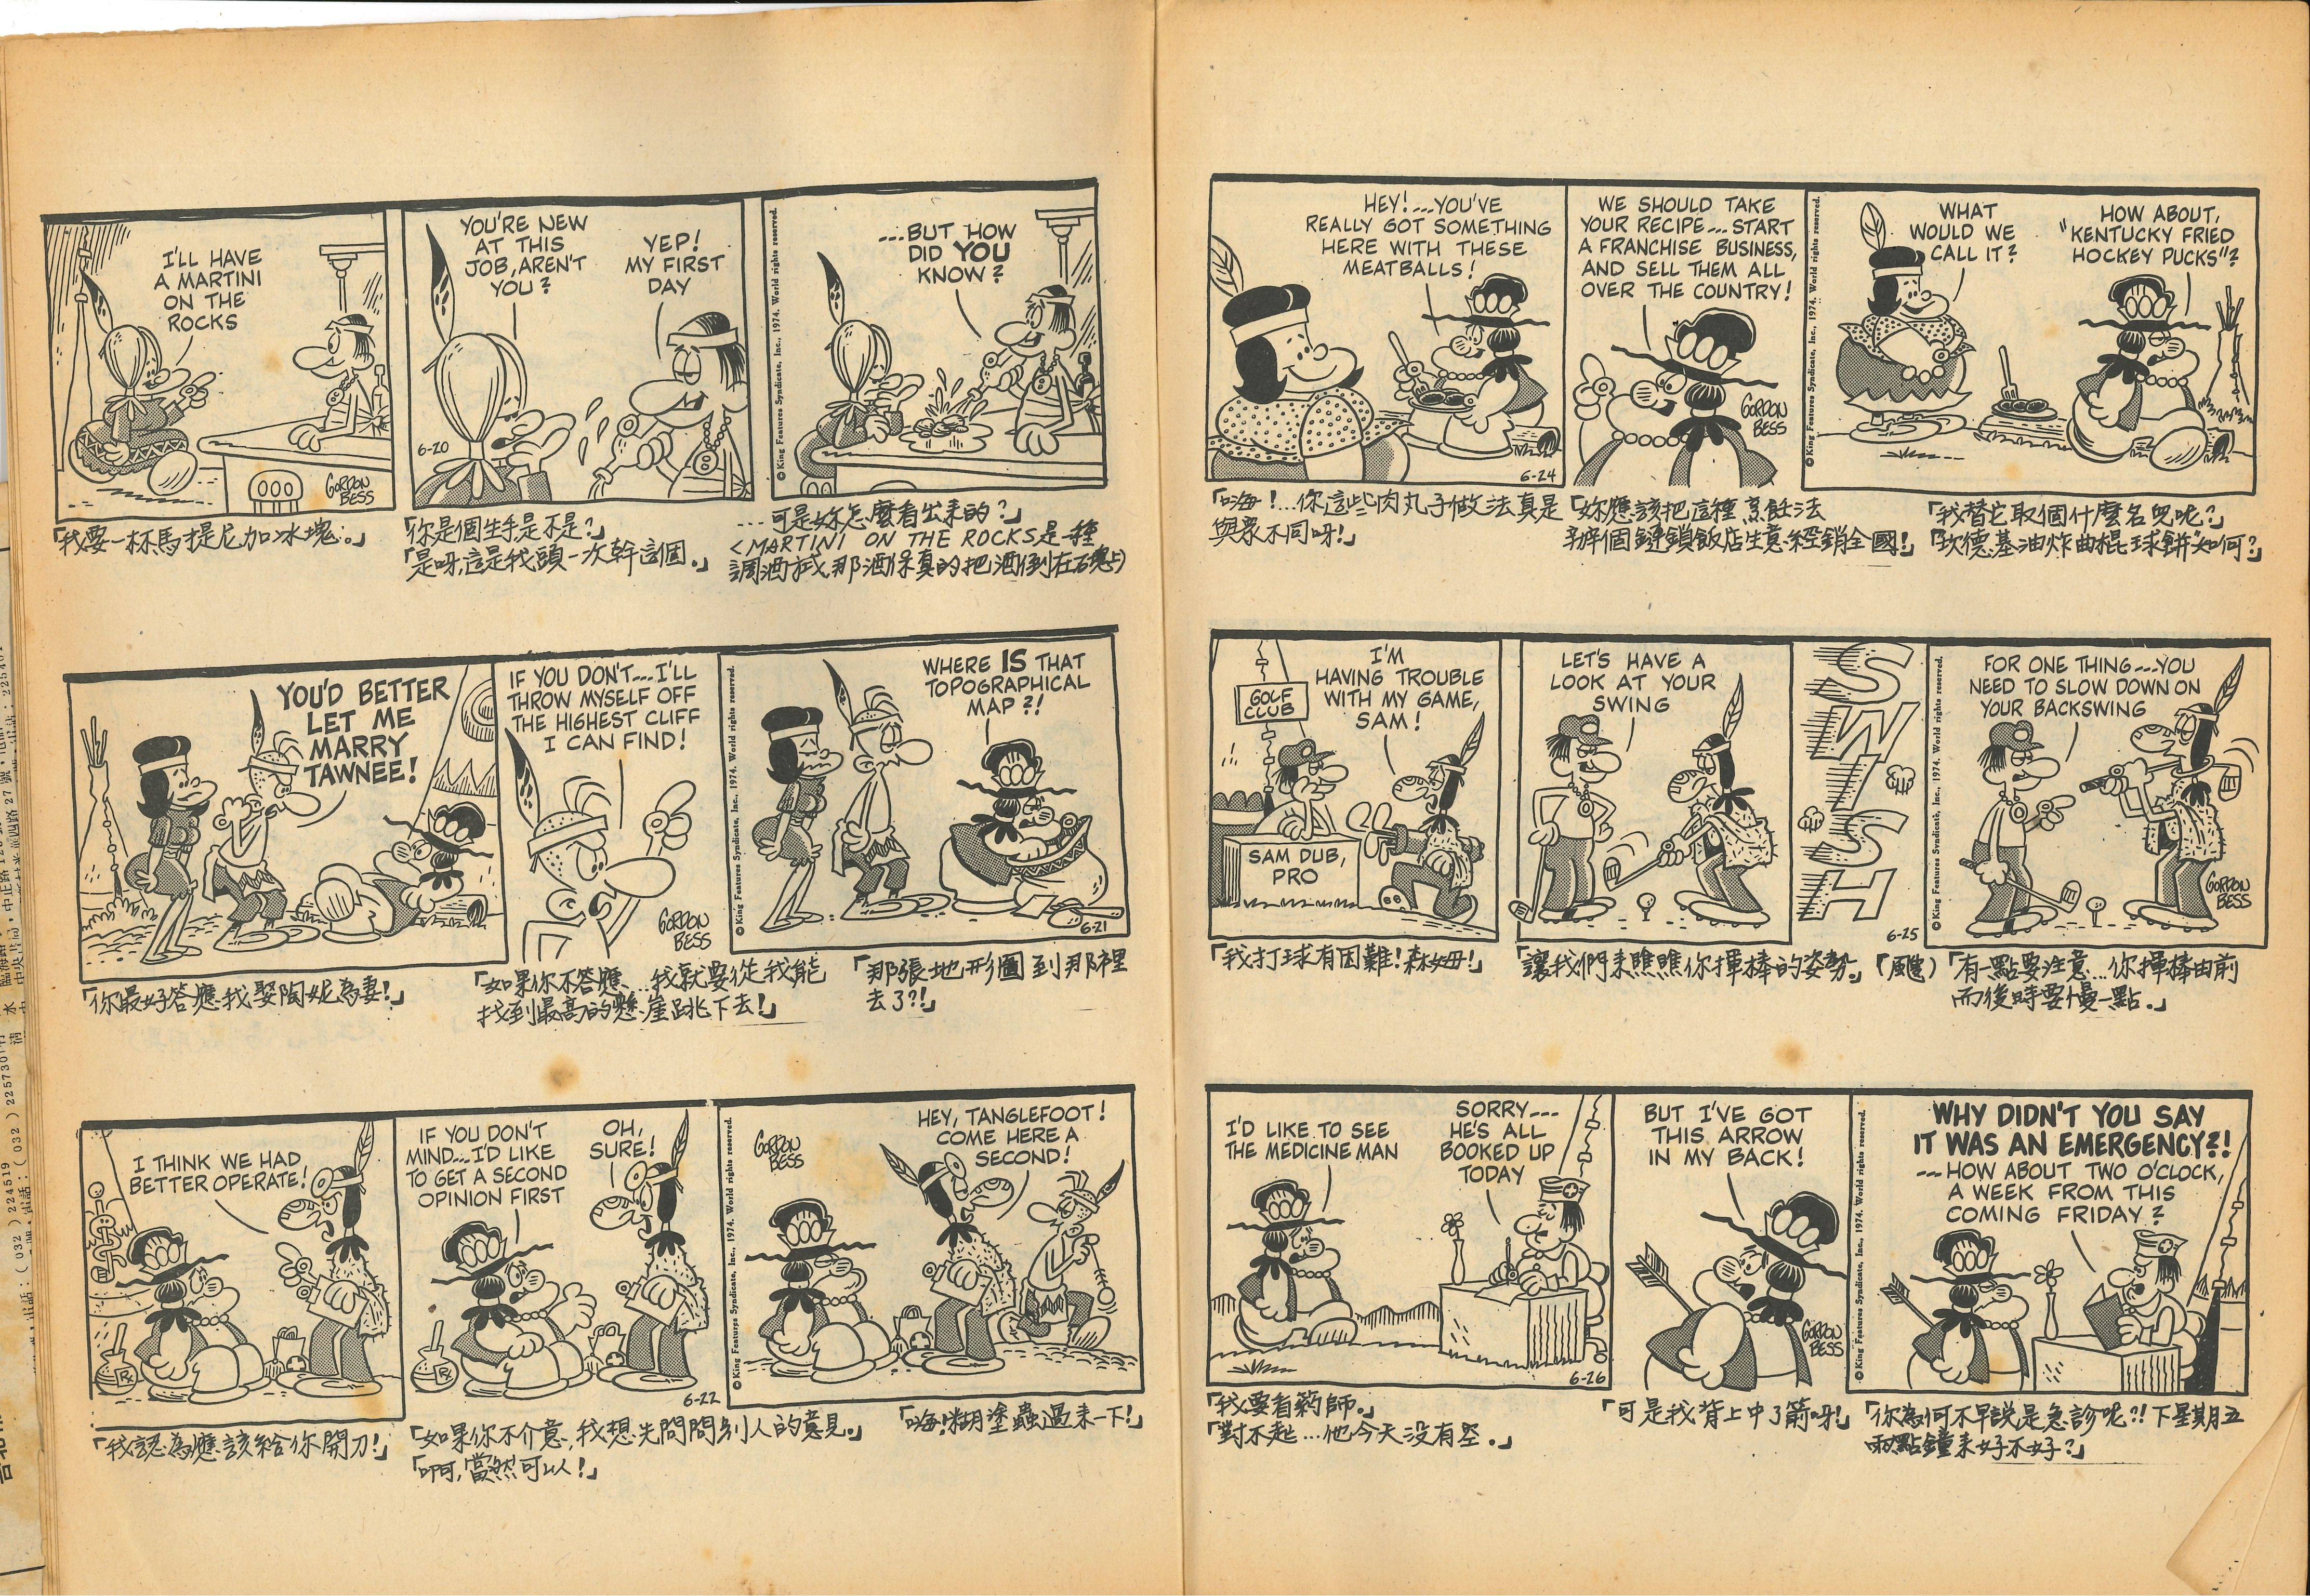 I'LL HAVE
A MARTINI
ON THE
ROCKS
GORDON
BESS
YOU'RE NEW
AT THIS
JOB, AREN'T
YOU?
YEP!
MY FIRST
DAY
6-20
© King Features Syndicate, Inc., 1974. World rights reserved.
...BUT HOW
DID YOU
KNOW?
「我要一杯馬提尼加冰塊。」
「你是個生手是不是?」
「是呀,這是我頭一次幹這個。」
...可是妳怎麼看出來的?」
<MARTINI ON THE ROCKS是一種
調酒方式,那酒保真的把酒倒在石塊上)
YOU'D BETTER
LET ME
MARRY
TAWNEE!
IF YOU DON'T...I'LL
THROW MYSELF OFF
THE HIGHEST CLIFF
I CAN FIND!
GORDON
BESS
© King Features Syndicate, Inc., 1974. World rights reserved.
WHERE IS THAT
TOPOGRAPHICAL
MAP?!
6-21
「你最好答應我娶陶妮為妻!」
「如果你不答應...我就要從我能
找到最高的懸崖跳下去!」
「那張地形圖到那裡
去了?!」
I THINK WE HAD
BETTER OPERATE!
IF YOU DON'T
MIND...I'D LIKE
TO GET A SECOND
OPINION FIRST
OH,
SURE!
6-22
© King Features Syndicate, Inc., 1974. World rights reserved.
GORDON
BESS
HEY, TANGLEFOOT!
COME HERE A
SECOND!
「我認為應該給你開刀!」
「如果你不介意,我想先問問別人的意見。」
「啊,當然可以!」
「嗨!糊塗蟲過來一下!」
HEY!...YOU'VE
REALLY GOT SOMETHING
HERE WITH THESE
MEATBALLS!
6-24
WE SHOULD TAKE
YOUR RECIPE...START
A FRANCHISE BUSINESS,
AND SELL THEM ALL
OVER THE COUNTRY!
GORDON
BESS
© King Features Syndicate, Inc., 1974. World rights reserved.
WHAT
WOULD WE
CALL IT?
HOW ABOUT,
"KENTUCKY FRIED
HOCKEY PUCKS"?
「嗨!...你這些肉丸子做法真是
與眾不同呀!」
「妳應該把這種烹飪法
辦個鏈鎖飯店生意,經銷全國!」
「我替它取個什麼名兒呢?」
「"坎德基油炸曲棍球餅"如何?」
GOLF
CLUB
I'M
HAVING TROUBLE
WITH MY GAME,
SAM!
SAM DUB,
PRO
LET'S HAVE A
LOOK AT YOUR
SWING
SWISH
6-25
© King Features Syndicate, Inc., 1974. World rights reserved.
FOR ONE THING...YOU
NEED TO SLOW DOWN ON
YOUR BACKSWING
GORDON
BESS
「我打球有困難!森姆!」
「讓我們來瞧瞧你揮棒的姿勢」
「有一點要注意...你揮棒由前
而後時要慢一點.」
I'D LIKE TO SEE
THE MEDICINE MAN
SORRY---
HE'S ALL
BOOKED UP
TODAY
6-26
BUT I'VE GOT
THIS ARROW
IN MY BACK!
GORDON
BESS
© King Features Syndicate, Inc., 1974. World rights reserved.
WHY DIDN'T YOU SAY
IT WAS AN EMERGENCY?!
---HOW ABOUT TWO O'CLOCK,
A WEEK FROM THIS
COMING FRIDAY?
「我要看葯師。」
「對不起...他今天没有空.」
「可是我背上中了箭呀!」
「你為何不早説是急診呢?!下星期五
兩點鐘來好不好?」